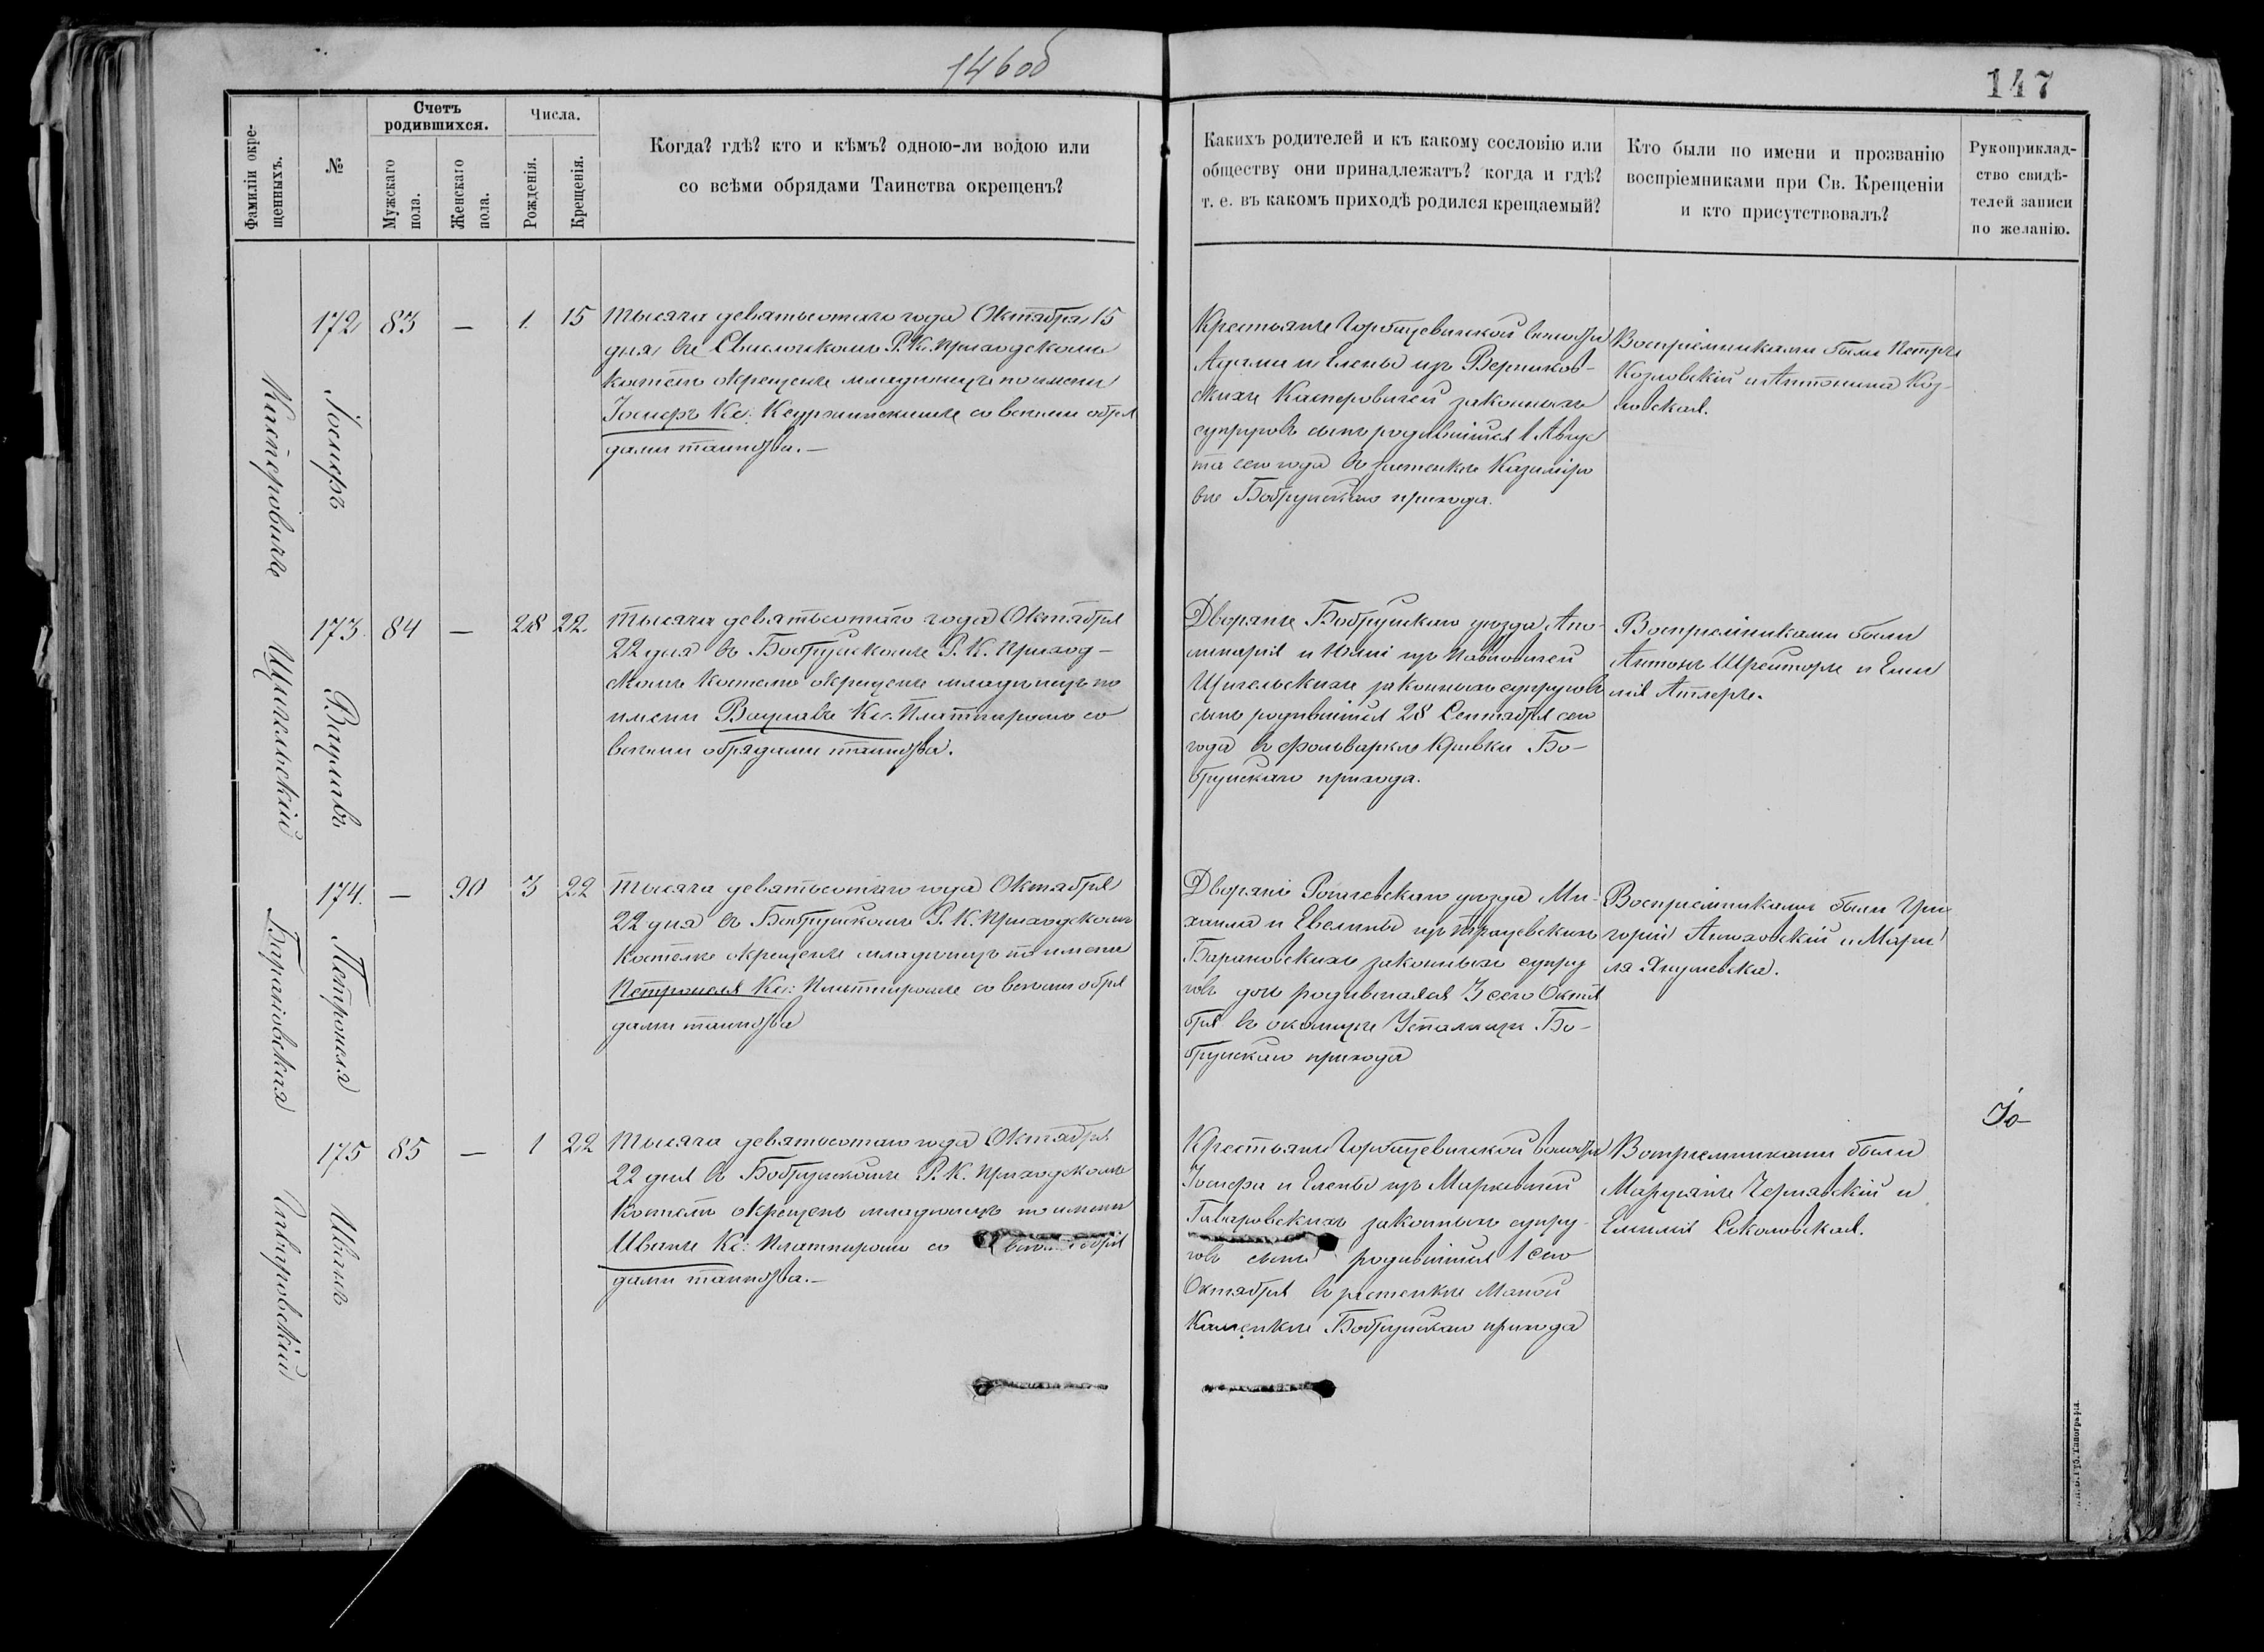 146об
147
Фамиліи окре-
щенныхъ.
№
Счетъ
родившихся.
Мужскаго
пола.
Женскаго
пола.
Числа.
Рожденія.
Крещенія.
Когда? гдѣ? кто и кѣмъ? одною-ли водою или
со всѣми обрядами Таинства окрещенъ?
Какихъ родителей и къ какому сословію или
обществу они принадлежатъ? когда и гдѣ?
т. е. въ какомъ приходѣ родился крещаемый?
Кто были по имени и прозванію
воспріемниками при Св. Крещеніи
и кто присутствовалъ?
Рукоприклад-
ство свидѣ-
телей записи
по желанію.
Касперовичъ
172
Іосифъ
83
—
1.
15
Тысяча девятьсотаго года Октября 15
дня въ Свислочскомъ Р. К. Приходскомъ
костелѣ окрещенъ младенецъ по имени
Іосифъ Кс: со всѣми обря
дами таинства. —
Крестьянъ Горбацевичской волости
Адама и Елены изъ Верников-
скихъ Касперовичей законныхъ
супруговъ сынъ родившійся 1 Авгус
та сего года въ застенкѣ Казиміро
вкѣ Бобруйскаго прихода.
Воспріемниками были Петръ
Козловскій и Антонина Коз-
ловская.
Щигельскій
173.
Вацлавъ
84
—
28
22.
Тысяча девятьсотаго года Октября
22 дня въ Бобруйскомъ Р. К. Приход-
скомъ костелѣ окрещенъ младенецъ по
имени Вацлавъ Кс. Платпиромъ со
всѣми обрядами таинства.
Дворянъ Бобруйскаго уѣзда Апо-
линарія и Юліи изъ Павловичей
Щигельскихъ законныхъ супруговъ
сынъ родившійся 28 Сентября сего
года въ фольваркѣ Кривки Бо-
бруйскаго прихода.
Воспріемниками были
Антонъ и Еми
лія
Барановская
174.
Петронеля
—
90
3
22
Тысяча девятьсотаго года Октября
22 дня въ Бобруйскомъ Р. К. Приходскомъ
костелѣ окрещенъ младенецъ по имени
Петронеля Кс: Платпиромъ со всѣми обря
дами таинства
Дворянъ Рогачевскаго уѣзда Ми-
хаила и Евелины изъ
Барановскихъ законныхъ супру
говъ дочь родившаяся 3 сего Октя
бря въ околицѣ Бо-
бруйскаго прихода
Воспріемниками были Гри
горій и Мари
ля
Гаваровскій
175
Иванъ
85
—
1
22
Тысяча девятьсотаго года Октября
22 дня въ Бобруйскомъ Р. К. Приходскомъ
костелѣ окрещенъ младенецъ по имени
Иванъ Кс: Платпиромъ со всѣми обря
дами таинства. —
Крестьянъ Горбацевичской волости
Іосифа и Елены изъ Маркевичей
Гаваровскихъ законныхъ супру-
говъ сынъ родившійся 1 сего
Октября въ застенкѣ Малой
Каменкѣ Бобруйскаго прихода
Воспріемниками были
Марціанъ Чернявскій и
Емилія Соколовская.